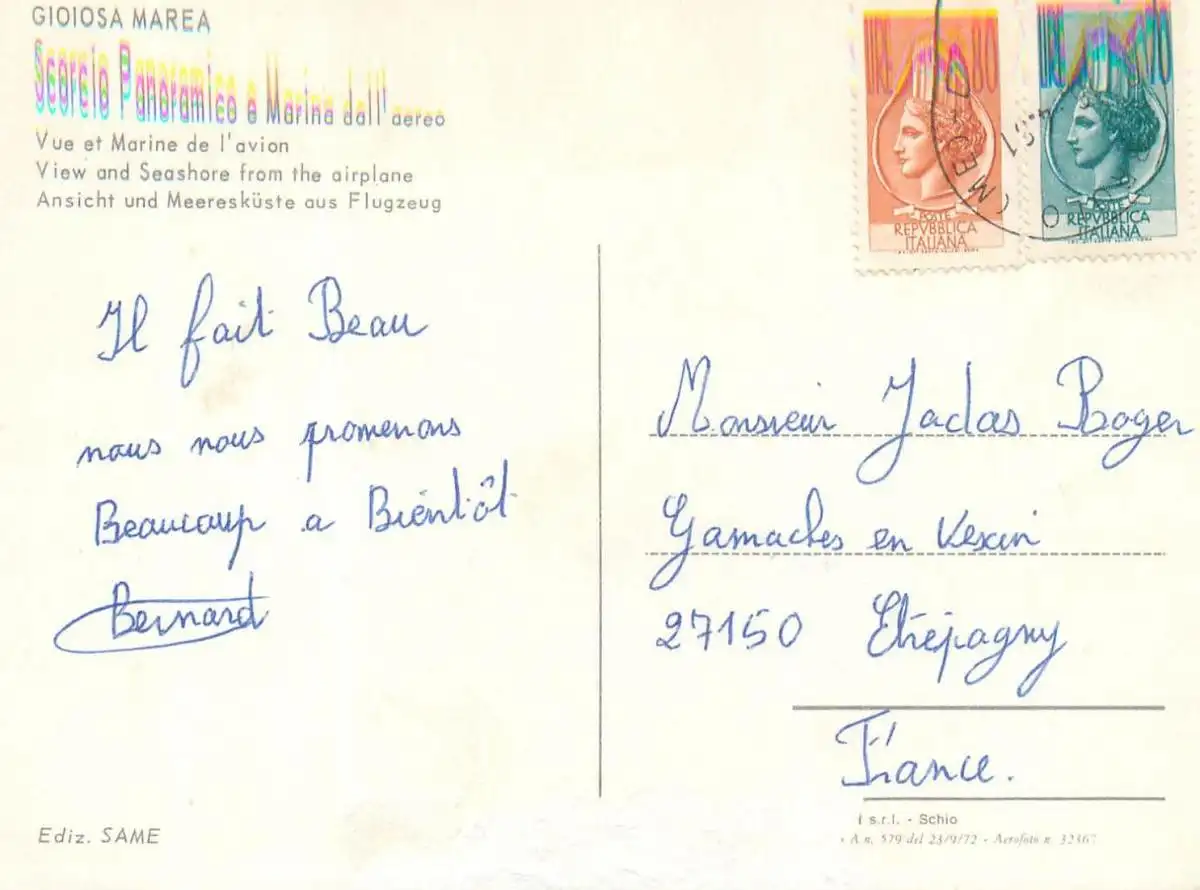 GIOIOSA MAREA
Scorcio Panoramico e Marina dall'aereo
Vue et Marine de l'avion
View and Seashore from the airplane
Ansicht und Meeresküste aus Flugzeug
POSTE
REPVBBLICA
ITALIANA
POSTE
REPVBBLICA
ITALIANA
Il fait Beau
nous nous promenons
Beaucoup a Bientôt
Bernard
Monsieur Jaclas Roger
Gamaches en Vexin
27150 Etrépagny
France.
Ediz. SAME
s.r.l. - Schio
A n. 579 del 23/9/72 - Aerofoto n. 32367